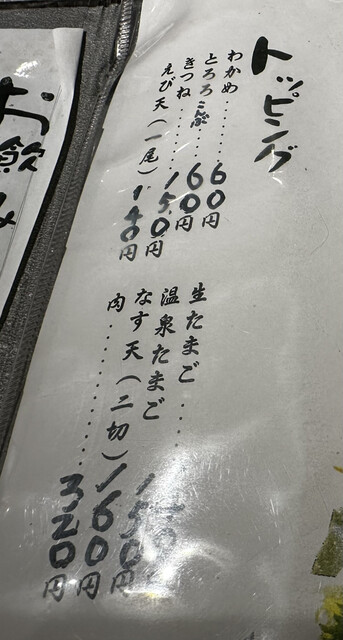 トッピング
わかめ……60円
とろろこんぶ…60円
きつね……150円
えび天(一尾)140円
生たまご…
温泉たまご
なす天(二切)160円
肉……320円
お飲み